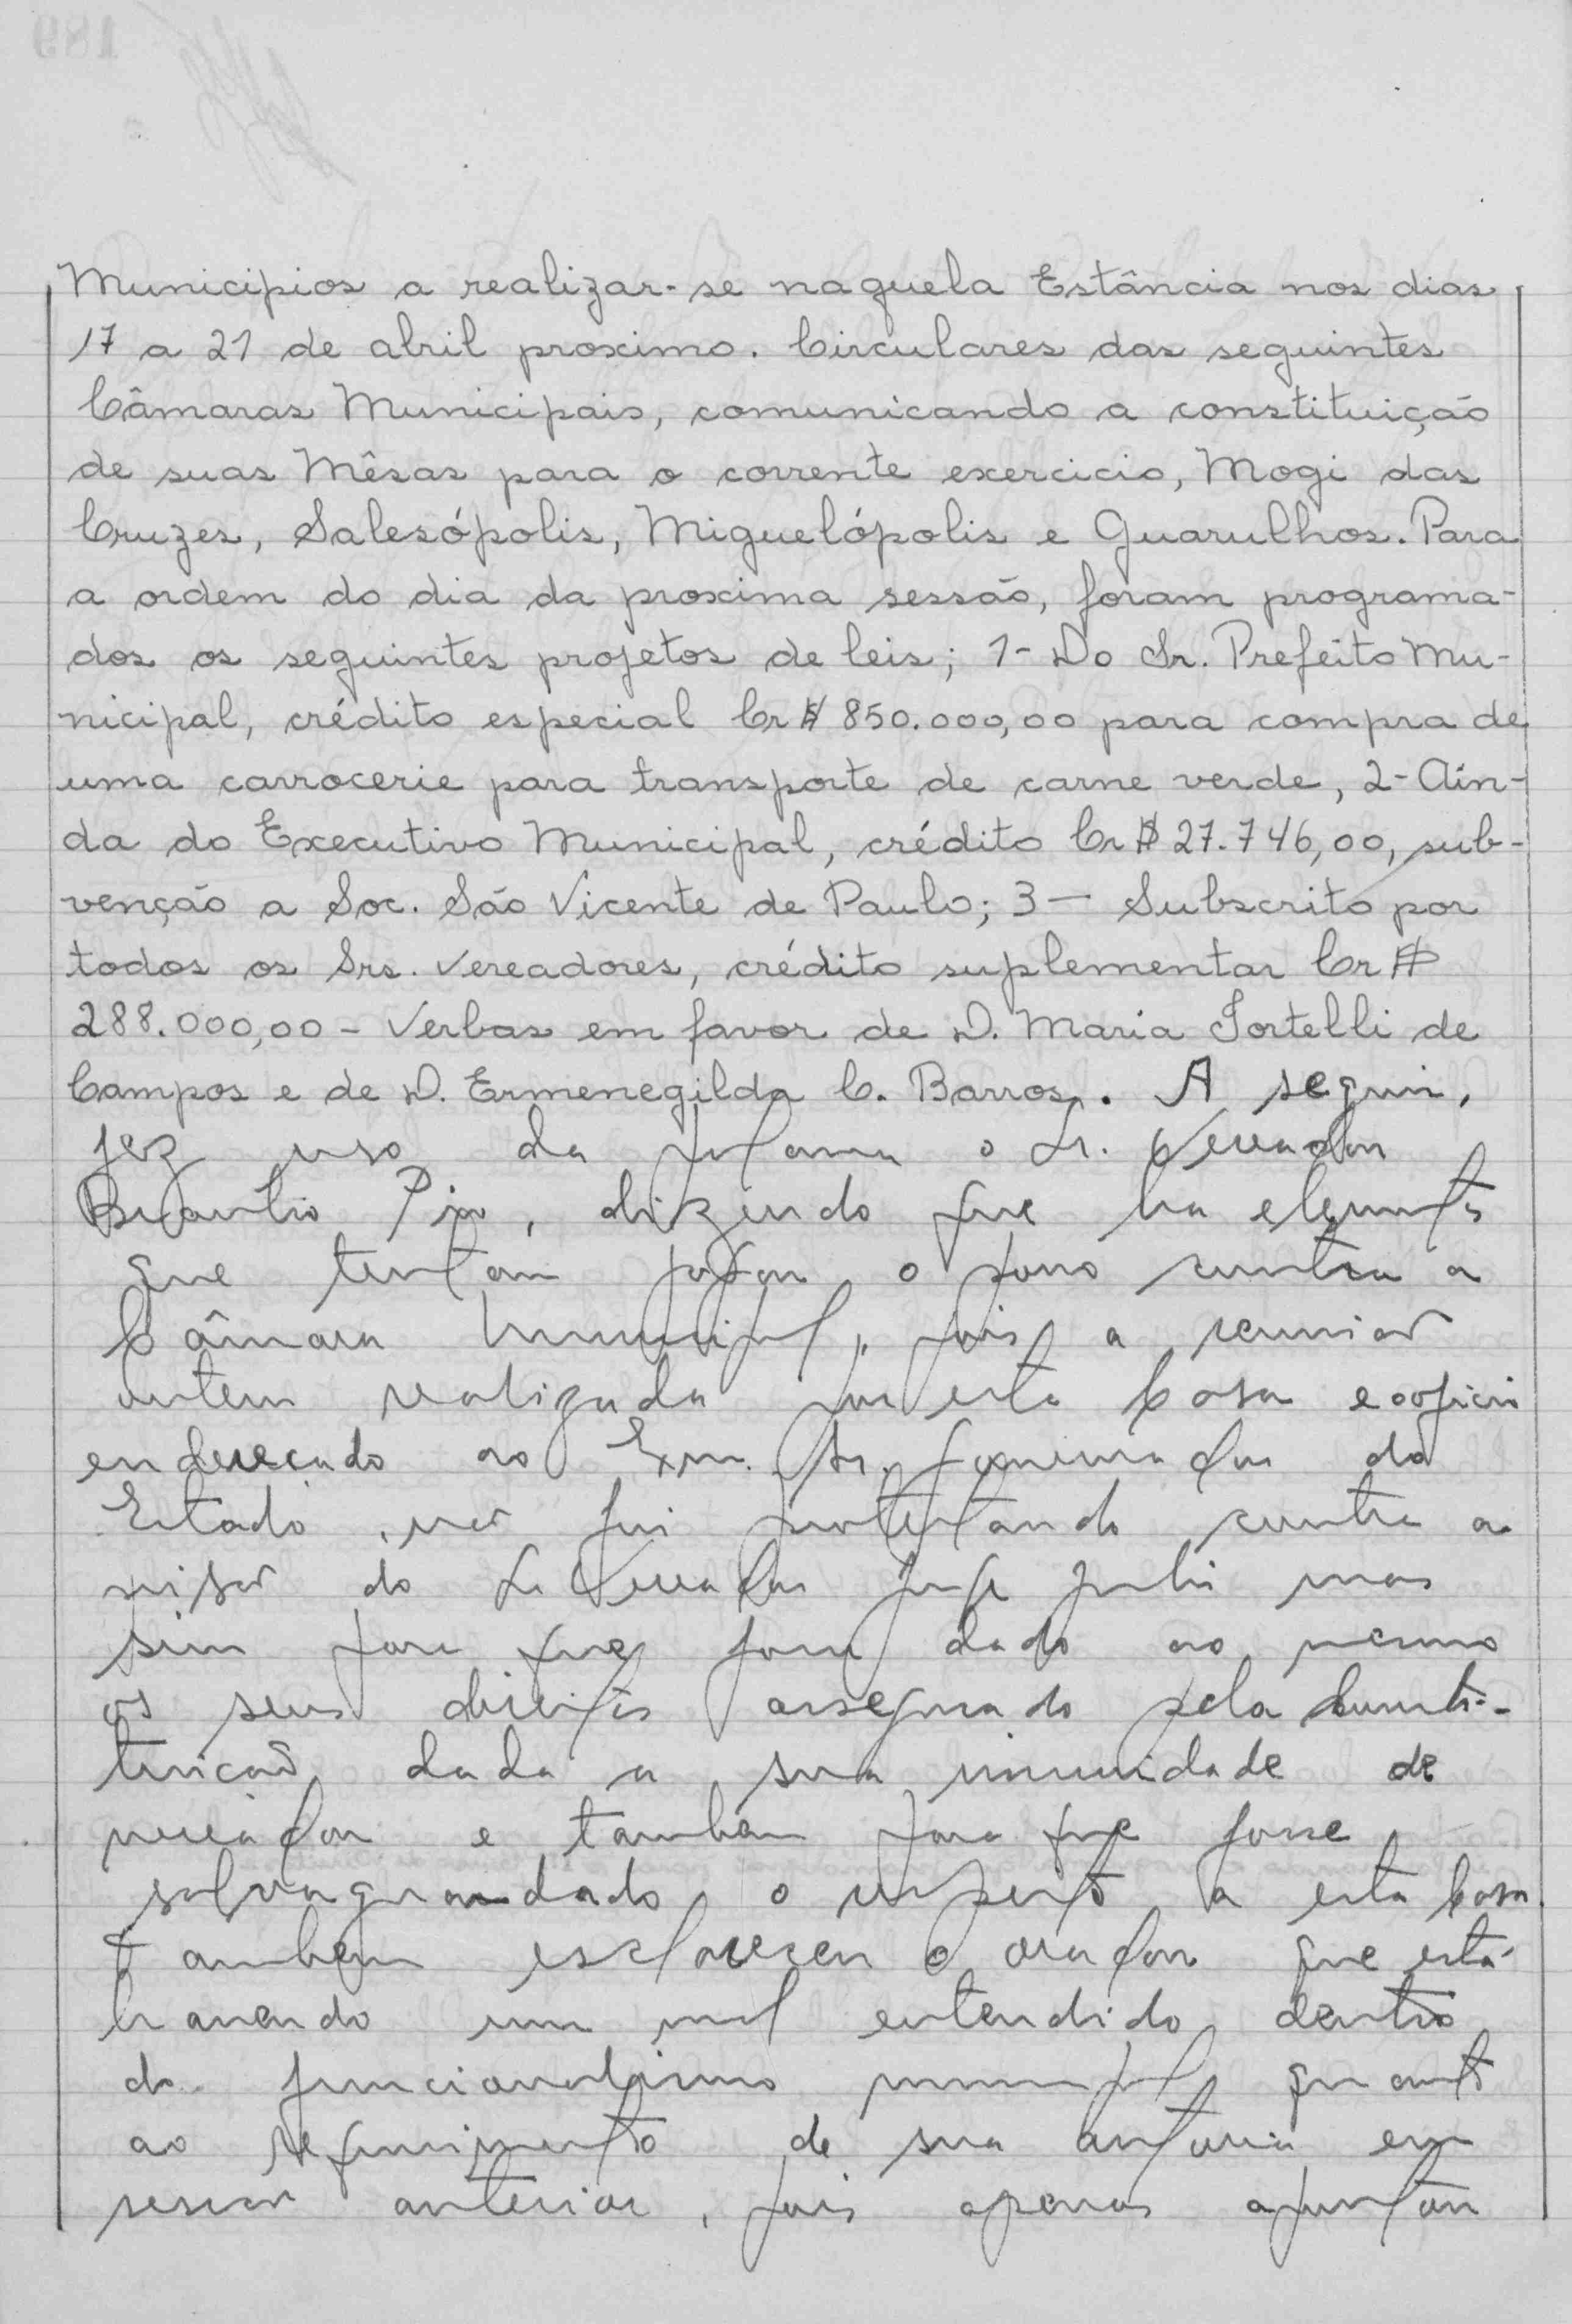 Municipios a realizar-se naquela Estância nos dias
17 a 21 de abril proximo. Circulares das seguintes
Câmaras Municipais, comunicando a constituição
de suas Mêsas para o corrente exercicio, Mogi das
Cruzes, Salesópolis, Miguelópolis e Guarulhos. Para
a ordem do dia da proxima sessão, foram programa-
dos os seguintes projetos de leis; 1- Do Sr. Prefeito Mu-
nicipal, crédito especial Cr$ 850.000,00 para compra de
uma carrocerie para transporte de carne verde, 2- Ain-
da do Executivo Municipal, crédito Cr$ 27.746,00, sub-
venção a Soc. São Vicente de Paulo; 3- Subscrito por
todos os Srs. Vereadores, crédito suplementar Cr$
288.000,00 - Verbas em favor de D. Maria Tortelli de
Campos e de D. Ermenegilda C. Barros. A seguir,
fez uso da palavra o Sr. Vereador
Braulio Pio, dizendo que ha elementos
que tentam jogar o povo contra a
Câmara Municipal, pois a reunião
ontem realizada por esta Casa e o oficio
endereçado ao Exm. Sr. Governador do
Estado, não foi protestando contra a
prisão do Sr Vereador mas
sim para que fosse dado ao mesmo
os seus direitos assegurado pela Consti-
tuição dada a sua imunidade de
vereador e tambem para que fosse
salvaguardado o respeito a esta Casa.
Tambem esclareceu o orador que está
havendo um mal entendido dentro
do funcionalismo municipal quanto
ao requerimento de sua autoria em
sessão anterior, pois apenas